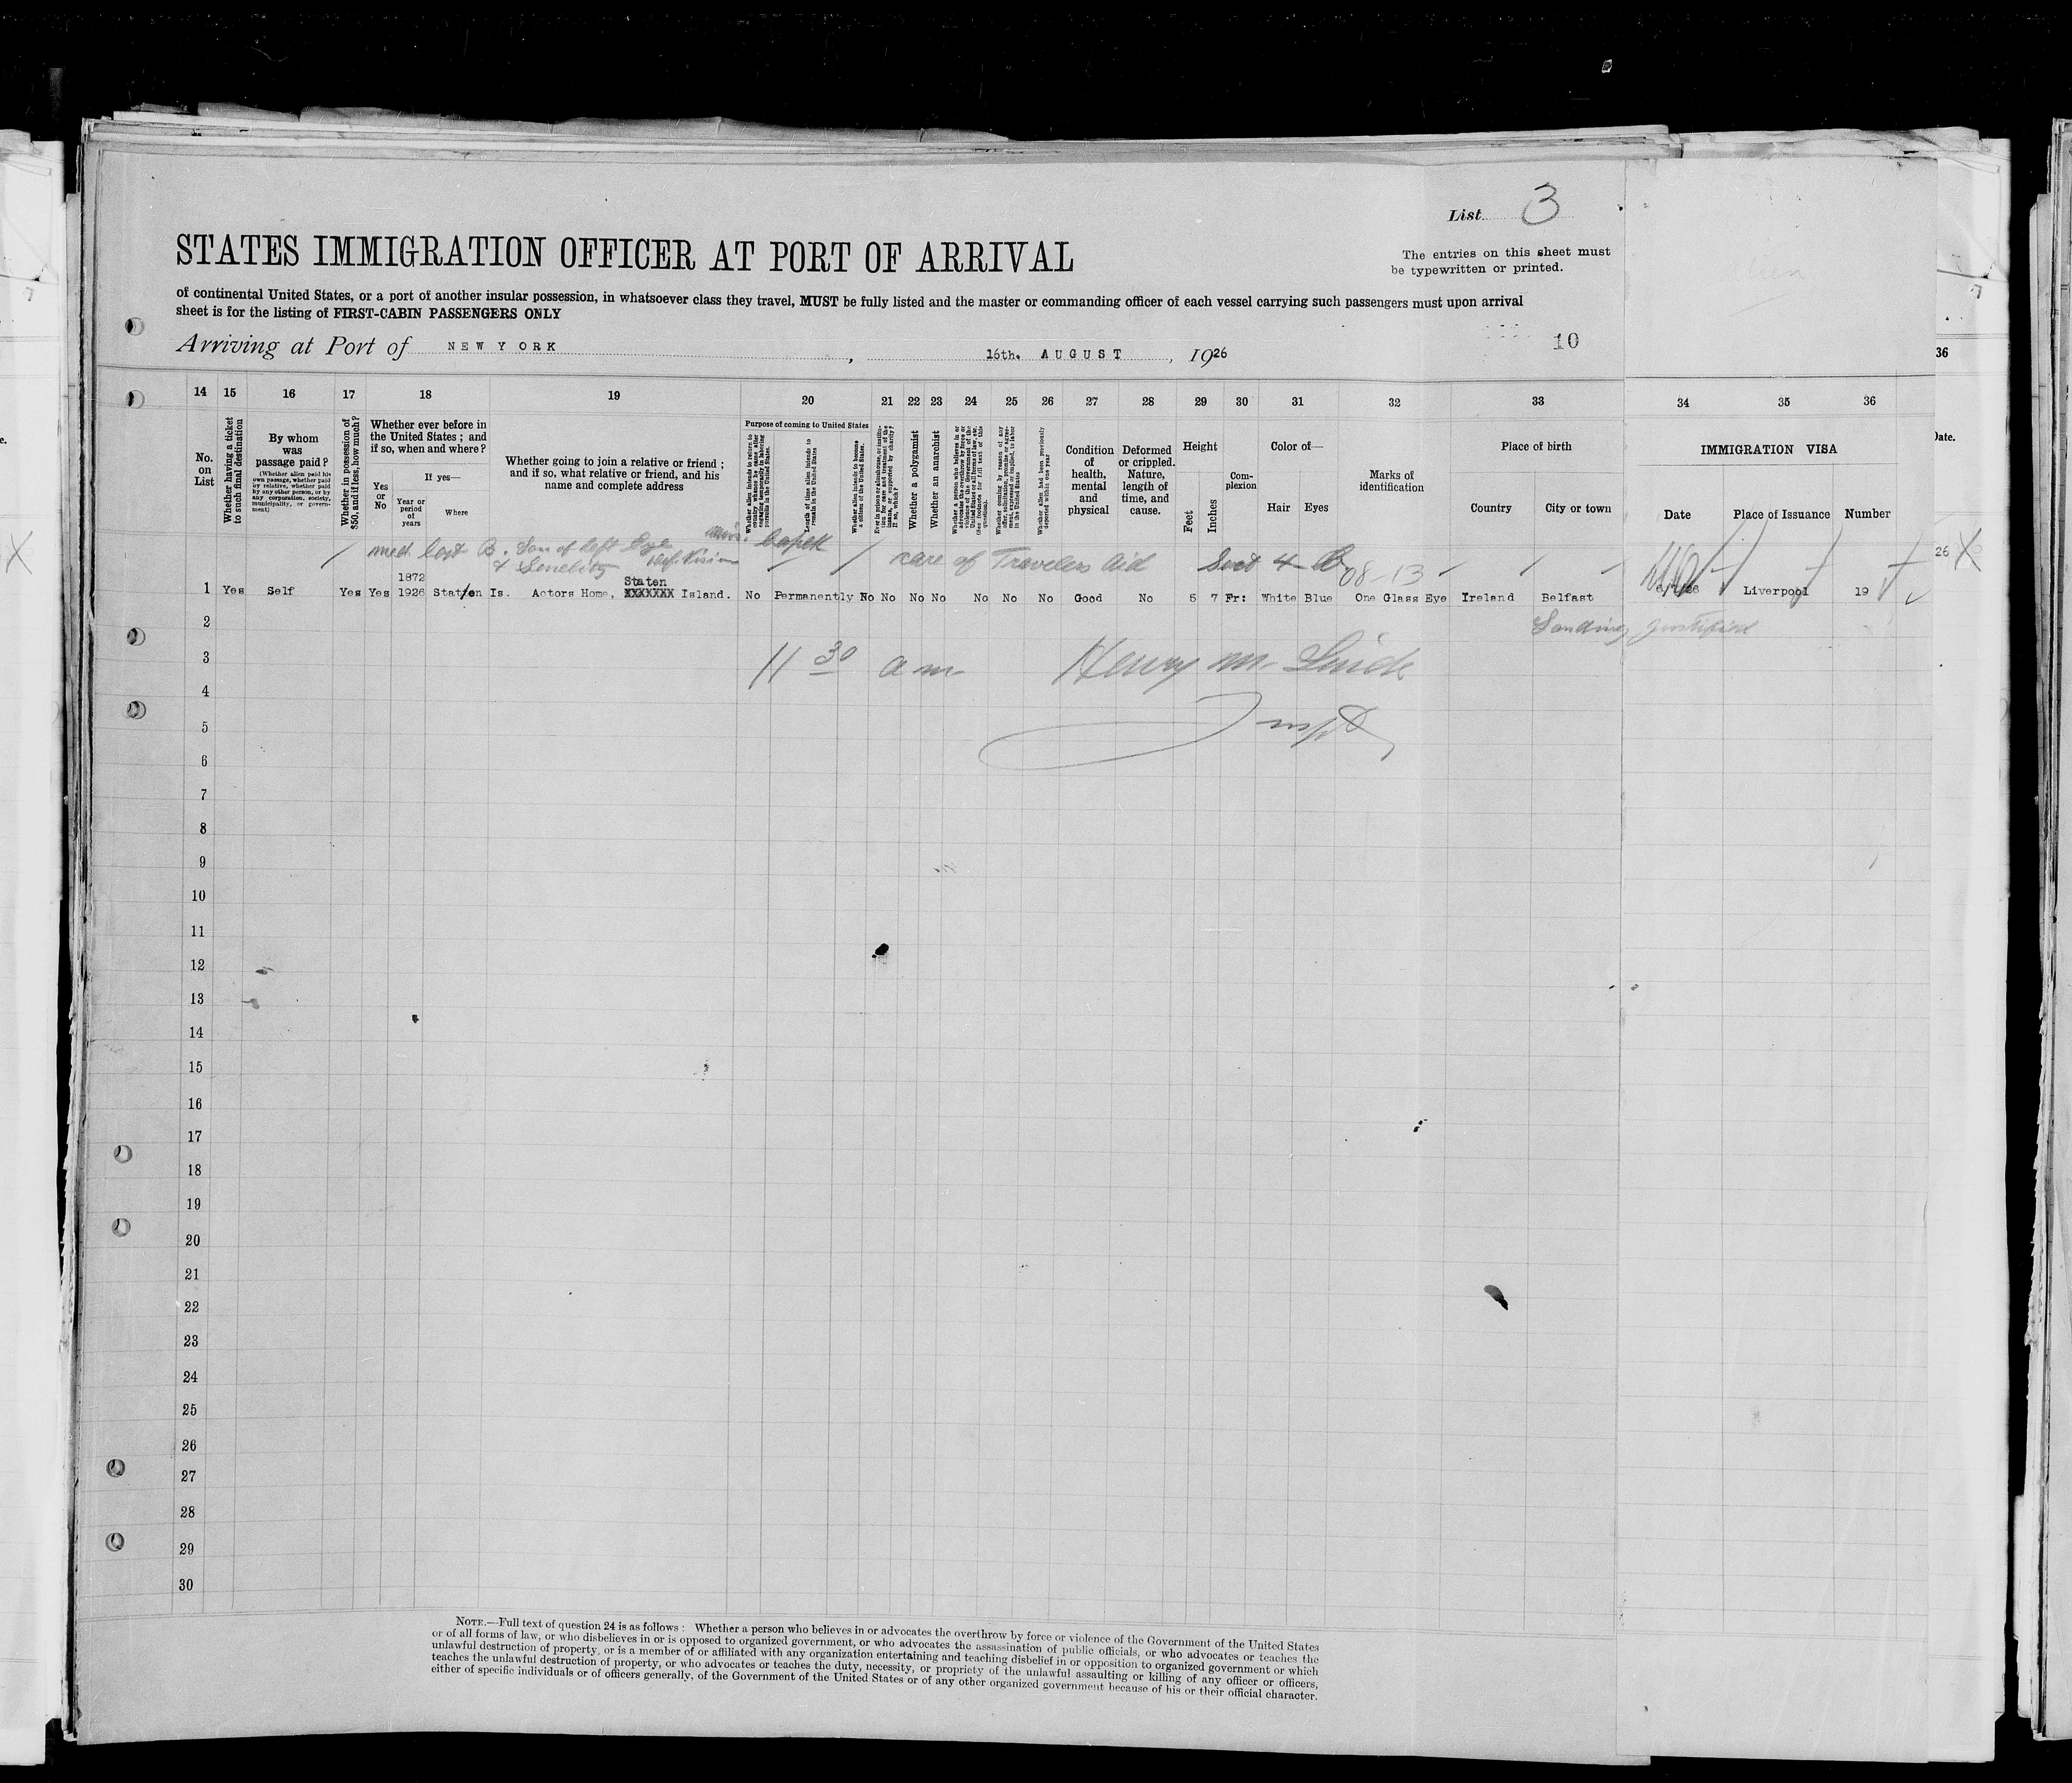 List 3
STATES IMMIGRATION OFFICER AT PORT OF ARRIVAL
The entries on this sheet must
be typewritten or printed.
of continental United States, or a port of another insular possession, in whatsoever class they travel, MUST be fully listed and the master or commanding officer of each vessel carrying such passengers must upon arrival
sheet is for the listing of FIRST-CABIN PASSENGERS ONLY
Arriving at Port of NEW YORK, 16th. AUGUST, 1926
10
36
14 15 16 17 18 19 20 21 22 23 24 25 26 27 28 29 30 31 32 33 34 35 36
No. on List
Whether having a ticket to such final destination
By whom was passage paid?
(Whether alien paid his own passage, whether paid by relative, whether paid by any other person, or by any corporation, society, municipality, or government)
Whether in possession of $50, and if less, how much?
Whether ever before in the United States; and if so, when and where?
Yes or No
If yes—
Year or period of years
Where
Whether going to join a relative or friend; and if so, what relative or friend, and his name and complete address
Purpose of coming to United States
Whether alien intends to return to country whence he came after engaging temporarily in laboring pursuits in the United States.
Length of time alien intends to remain in the United States
Whether alien intends to become a citizen of the United States.
Ever in prison or almshouse, or institution for care and treatment of the insane, or supported by charity? If so, which?
Whether a polygamist
Whether an anarchist
Whether a person who believes in or advocates the overthrow by force or violence of the Government of the United States or all forms of law, etc. (See footnote for full text of this question).
Whether coming by reason of any offer, solicitation, promise or agreement, expressed or implied, to labor in the United States
Whether alien had been previously deported within one year
Condition of health, mental and physical
Deformed or crippled. Nature, length of time, and cause.
Height
Feet
Inches
Complexion
Color of—
Hair Eyes
Marks of identification
Place of birth
Country City or town
IMMIGRATION VISA
Date Place of Issuance Number
Date.
med cert B. Loss of left Eye
& Senility def. Vision
care of Travelers Aid
08-13
26 X
1872
Staten
1 Yes Self Yes Yes 1926 Staten Is. Actors Home, XXXXXXX Island. No Permanently No No No No No No No No Good No 5 7 Fr: White Blue One Glass Eye Ireland Belfast Liverpool 19
2 Landing justified
3 11 30 am Henry M.
4
5 Inspt
6
7
8
9
10
11
12
13
14
15
16
17
18
19
20
21
22
23
24
25
26
27
28
29
30
NOTE.—Full text of question 24 is as follows: Whether a person who believes in or advocates the overthrow by force or violence of the Government of the United States
or of all forms of law, or who disbelieves in or is opposed to organized government, or who advocates the assassination of public officials, or who advocates or teaches the
unlawful destruction of property, or is a member of or affiliated with any organization entertaining and teaching disbelief in or opposition to organized government or which
teaches the unlawful destruction of property, or who advocates or teaches the duty, necessity, or propriety of the unlawful assaulting or killing of any officer or officers,
either of specific individuals or of officers generally, of the Government of the United States or of any other organized government because of his or their official character.